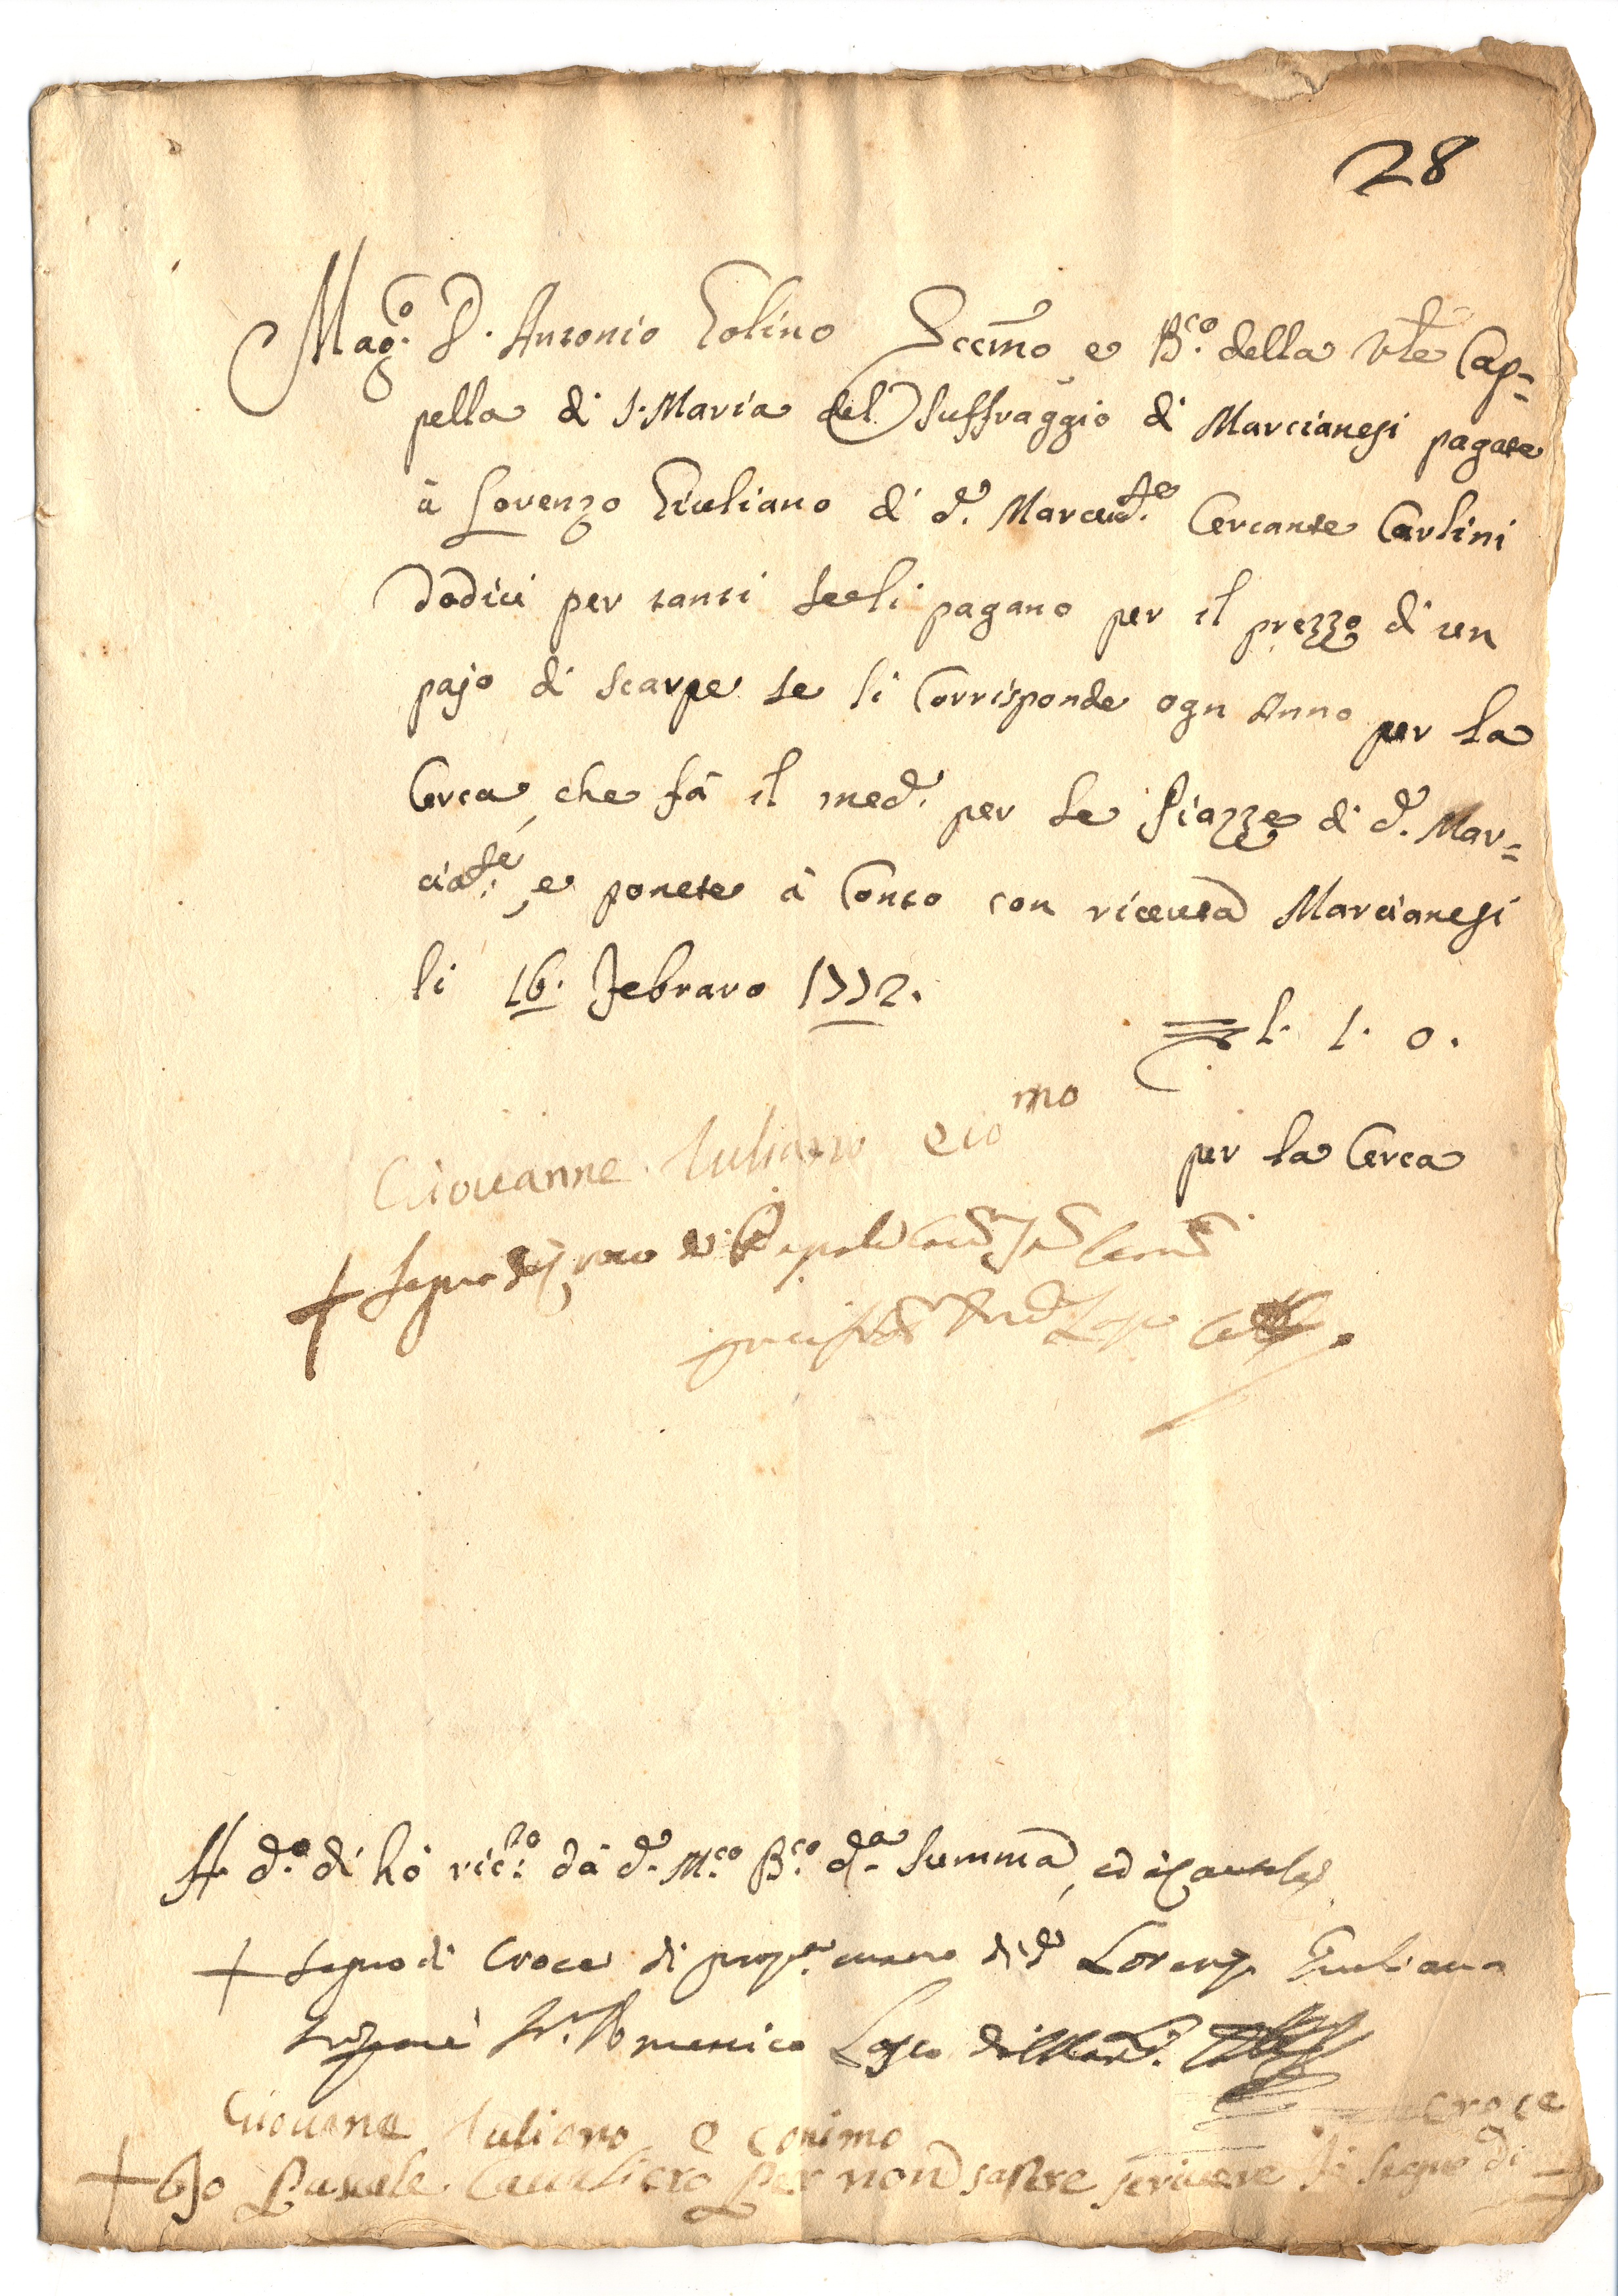 28
Mag.co D. Antonio Golino Eccmo e B.co della Vle Cap=
pella di S. Maria del Suffraggio di Marcianesi pagate
à Lorenzo Giuliano di d.º Cercante Carlini
Dodici per tanti seli pagano per il prezzo di un
pajo di scarpe se li Corrisponde ogn Anno per la
Cerca, che fà il med.º per le Piazze di d.º Mar=
e ponete à Conto con riceuta Marcianesi
li 16. Febraro 1772.
1. 1. 0.
Giouanne Iuliano eco mo
per la Cerca
+ Segno di
A d.º di hò ric.to dà d.º M.co B.co d.a Summa, ed in cautela
+ Segno di Croce di prop.a mano di d.º Lorenzo Giuliano
Domenico
Giouane Iuliano e conimo
croce
+ Io Pascale Caualiero Per non sapere scriuere fò segno di